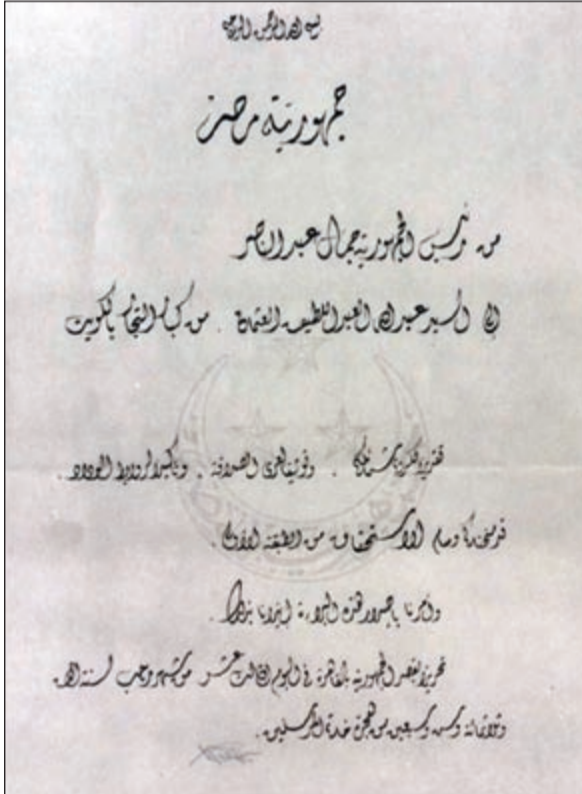 بسم الله الرحمن الرحيم
جمهورية مصر
من رئيس الجمهورية جمال عبد الناصر
إلى السيد عبد الله العبد اللطيف العثمان . من كبار التجار بالكويت
تقديرا لكريم شمائلكم . وتوثيقا لعرى الصداقة . وتأكيدا لروابط الوداد .
قد منحناكم وسام الاستحقاق من الطبقة الأولى .
وأمرنا بإصدار هذه البراءة إيذانا بذلك .
تحريرا بقصر الجمهورية بالقاهرة في اليوم الثالث عشر من شهر رجب لسنة ألف
وثلاثمائة وست وسبعين من هجرة خاتم المرسلين .